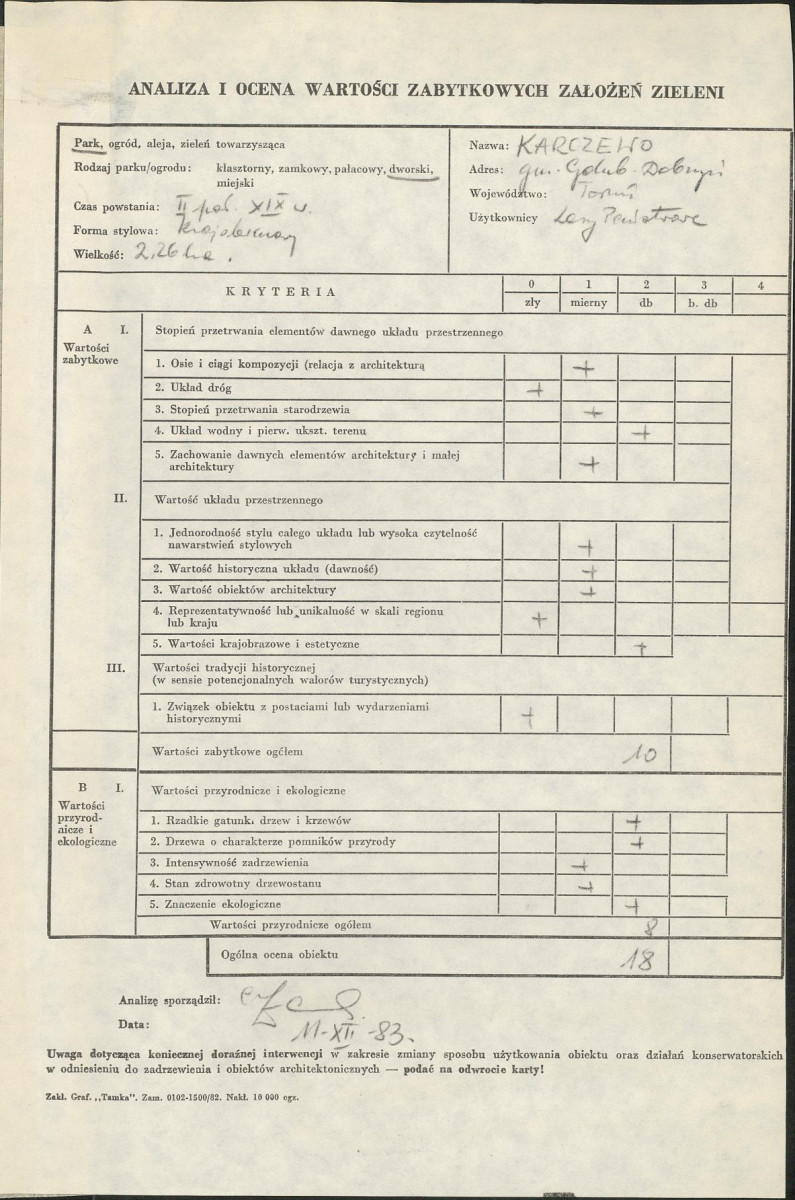 ANALIZA I OCENA WARTOŚCI ZABYTKOWYCH ZAŁOŻEŃ ZIELENI
Park, ogród, aleja, zieleń towarzysząca
Rodzaj parku/ogrodu: klasztorny, zamkowy, pałacowy, dworski,
miejski
Czas powstania: II poł. XIX w.
Forma stylowa: krajobrazowy
Wielkość: 2,26 ha.
Nazwa: KARCZEWO
Adres: gm. Golub-Dobrzyń
Województwo: Toruń
Użytkownicy Lasy Państwowe
KRYTERIA
0 1 2 3 4
zły mierny db b. db
A I. Stopień przetrwania elementów dawnego układu przestrzennego
Wartości
zabytkowe
1. Osie i ciągi kompozycji (relacja z architekturą +
2. Układ dróg +
3. Stopień przetrwania starodrzewia +
4. Układ wodny i pierw. ukszt. terenu +
5. Zachowanie dawnych elementów architektury i małej
architektury +
II. Wartość układu przestrzennego
1. Jednorodność stylu całego układu lub wysoka czytelność
nawarstwień stylowych +
2. Wartość historyczna układu (dawność) +
3. Wartość obiektów architektury +
4. Reprezentatywność lub unikalność w skali regionu
lub kraju +
5. Wartości krajobrazowe i estetyczne +
III. Wartości tradycji historycznej
(w sensie potencjonalnych walorów turystycznych)
1. Związek obiektu z postaciami lub wydarzeniami
historycznymi +
Wartości zabytkowe ogółem 10
B I. Wartości przyrodnicze i ekologiczne
Wartości
przyrod-
nicze i
ekologiczne
1. Rzadkie gatunki drzew i krzewów +
2. Drzewa o charakterze pomników przyrody +
3. Intensywność zadrzewienia +
4. Stan zdrowotny drzewostanu +
5. Znaczenie ekologiczne +
Wartości przyrodnicze ogółem 8
Ogólna ocena obiektu 18
Analizę sporządził:
Data: 11-XII-83.
Uwaga dotycząca koniecznej doraźnej interwencji w zakresie zmiany sposobu użytkowania obiektu oraz działań konserwatorskich
w odniesieniu do zadrzewienia i obiektów architektonicznych — podać na odwrocie karty!
Zakł. Graf. „Tamka". Zam. 0102-1500/82. Nakł. 10 000 egz.